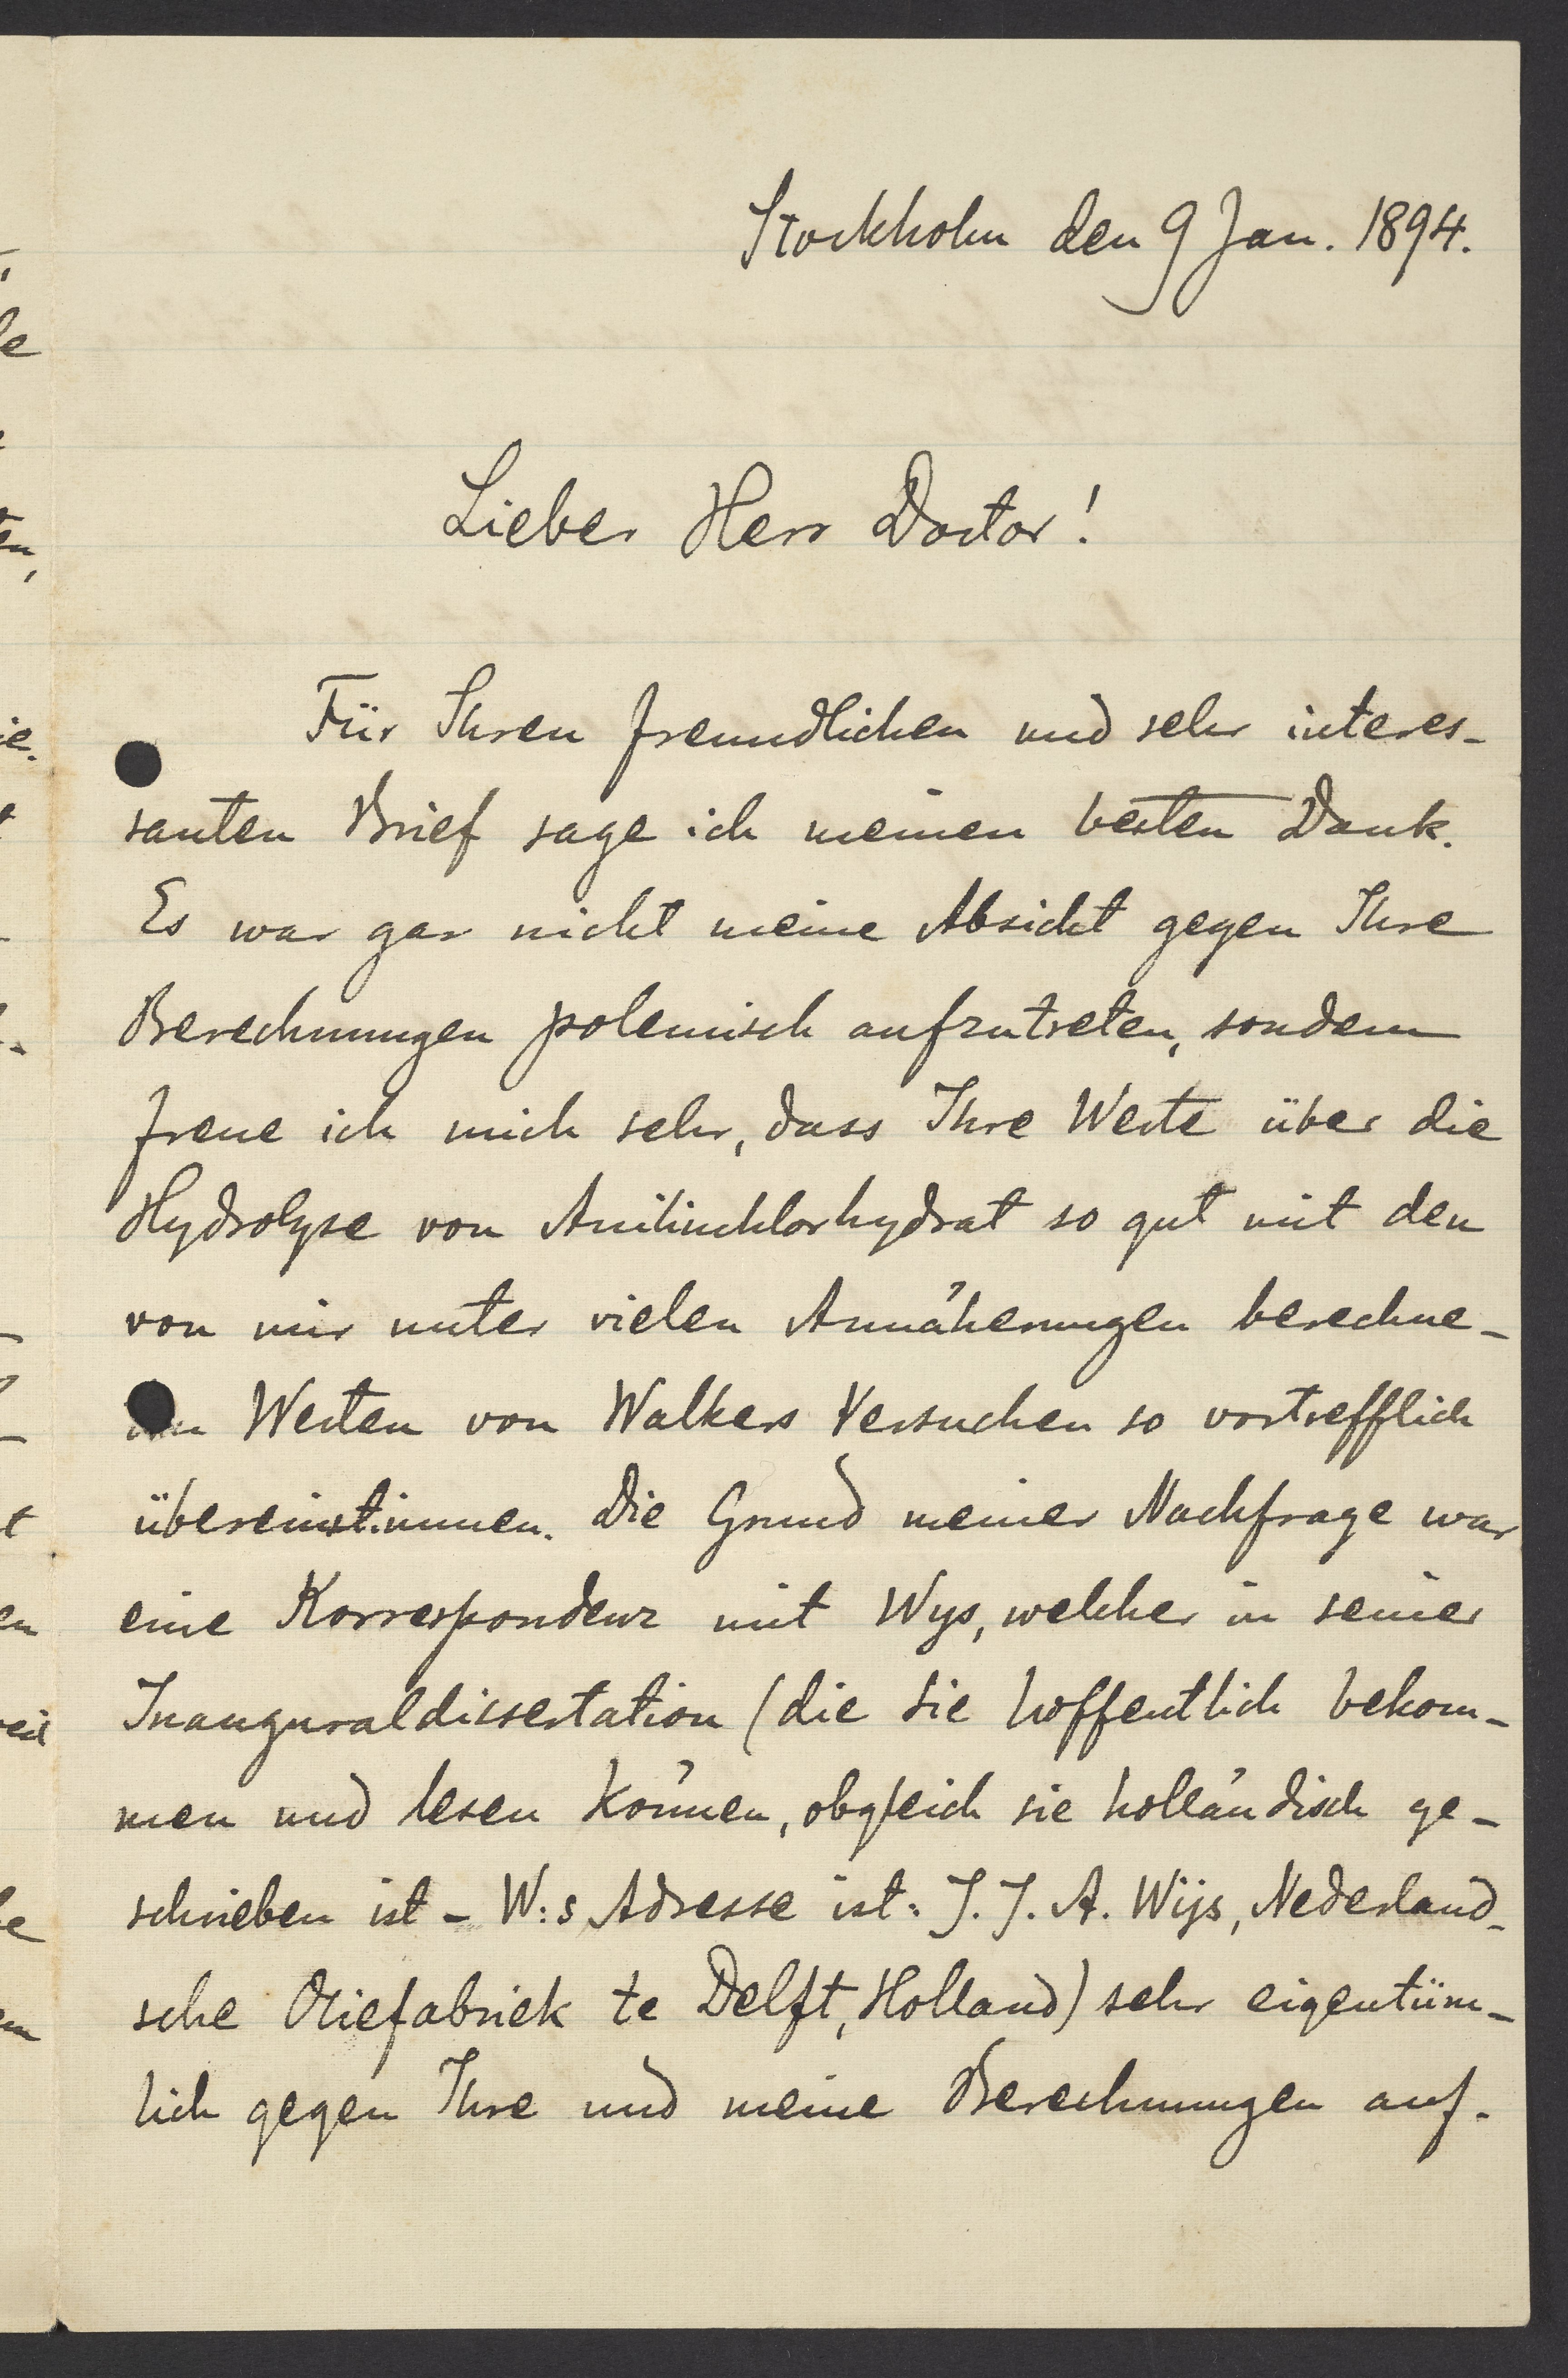 Stockholm den 9 Jan. 1894.
Lieber Herr Doctor!
Für Ihren freundlichen und sehr interes-
santen Brief sage ich meinen besten Dank.
Es war gar nicht meine Absicht gegen Ihre
Berechnungen polemisch aufzutreten, sondern
freue ich mich sehr, dass Ihre Werte über die
Hydrolyse von Anilinchlorhydrat so gut mit den
von mir unter vielen Annäherungen berechne-
ten Werten von Walkers Versuchen so vortrefflich
übereinstimmen. Die Grund meiner Nachfrage war
eine Korrespondenz mit Wys, welcher in seiner
Inauguraldissertation (die Sie hoffentlich bekom-
men und lesen können, obgleich sie holländisch ge-
schrieben ist - W:s Adresse ist: J. J. A. Wijs, Nederland-
sche Oliefabriek te Delft, Holland) sehr eigentüm-
lich gegen Ihre und meine Berechnungen auf-